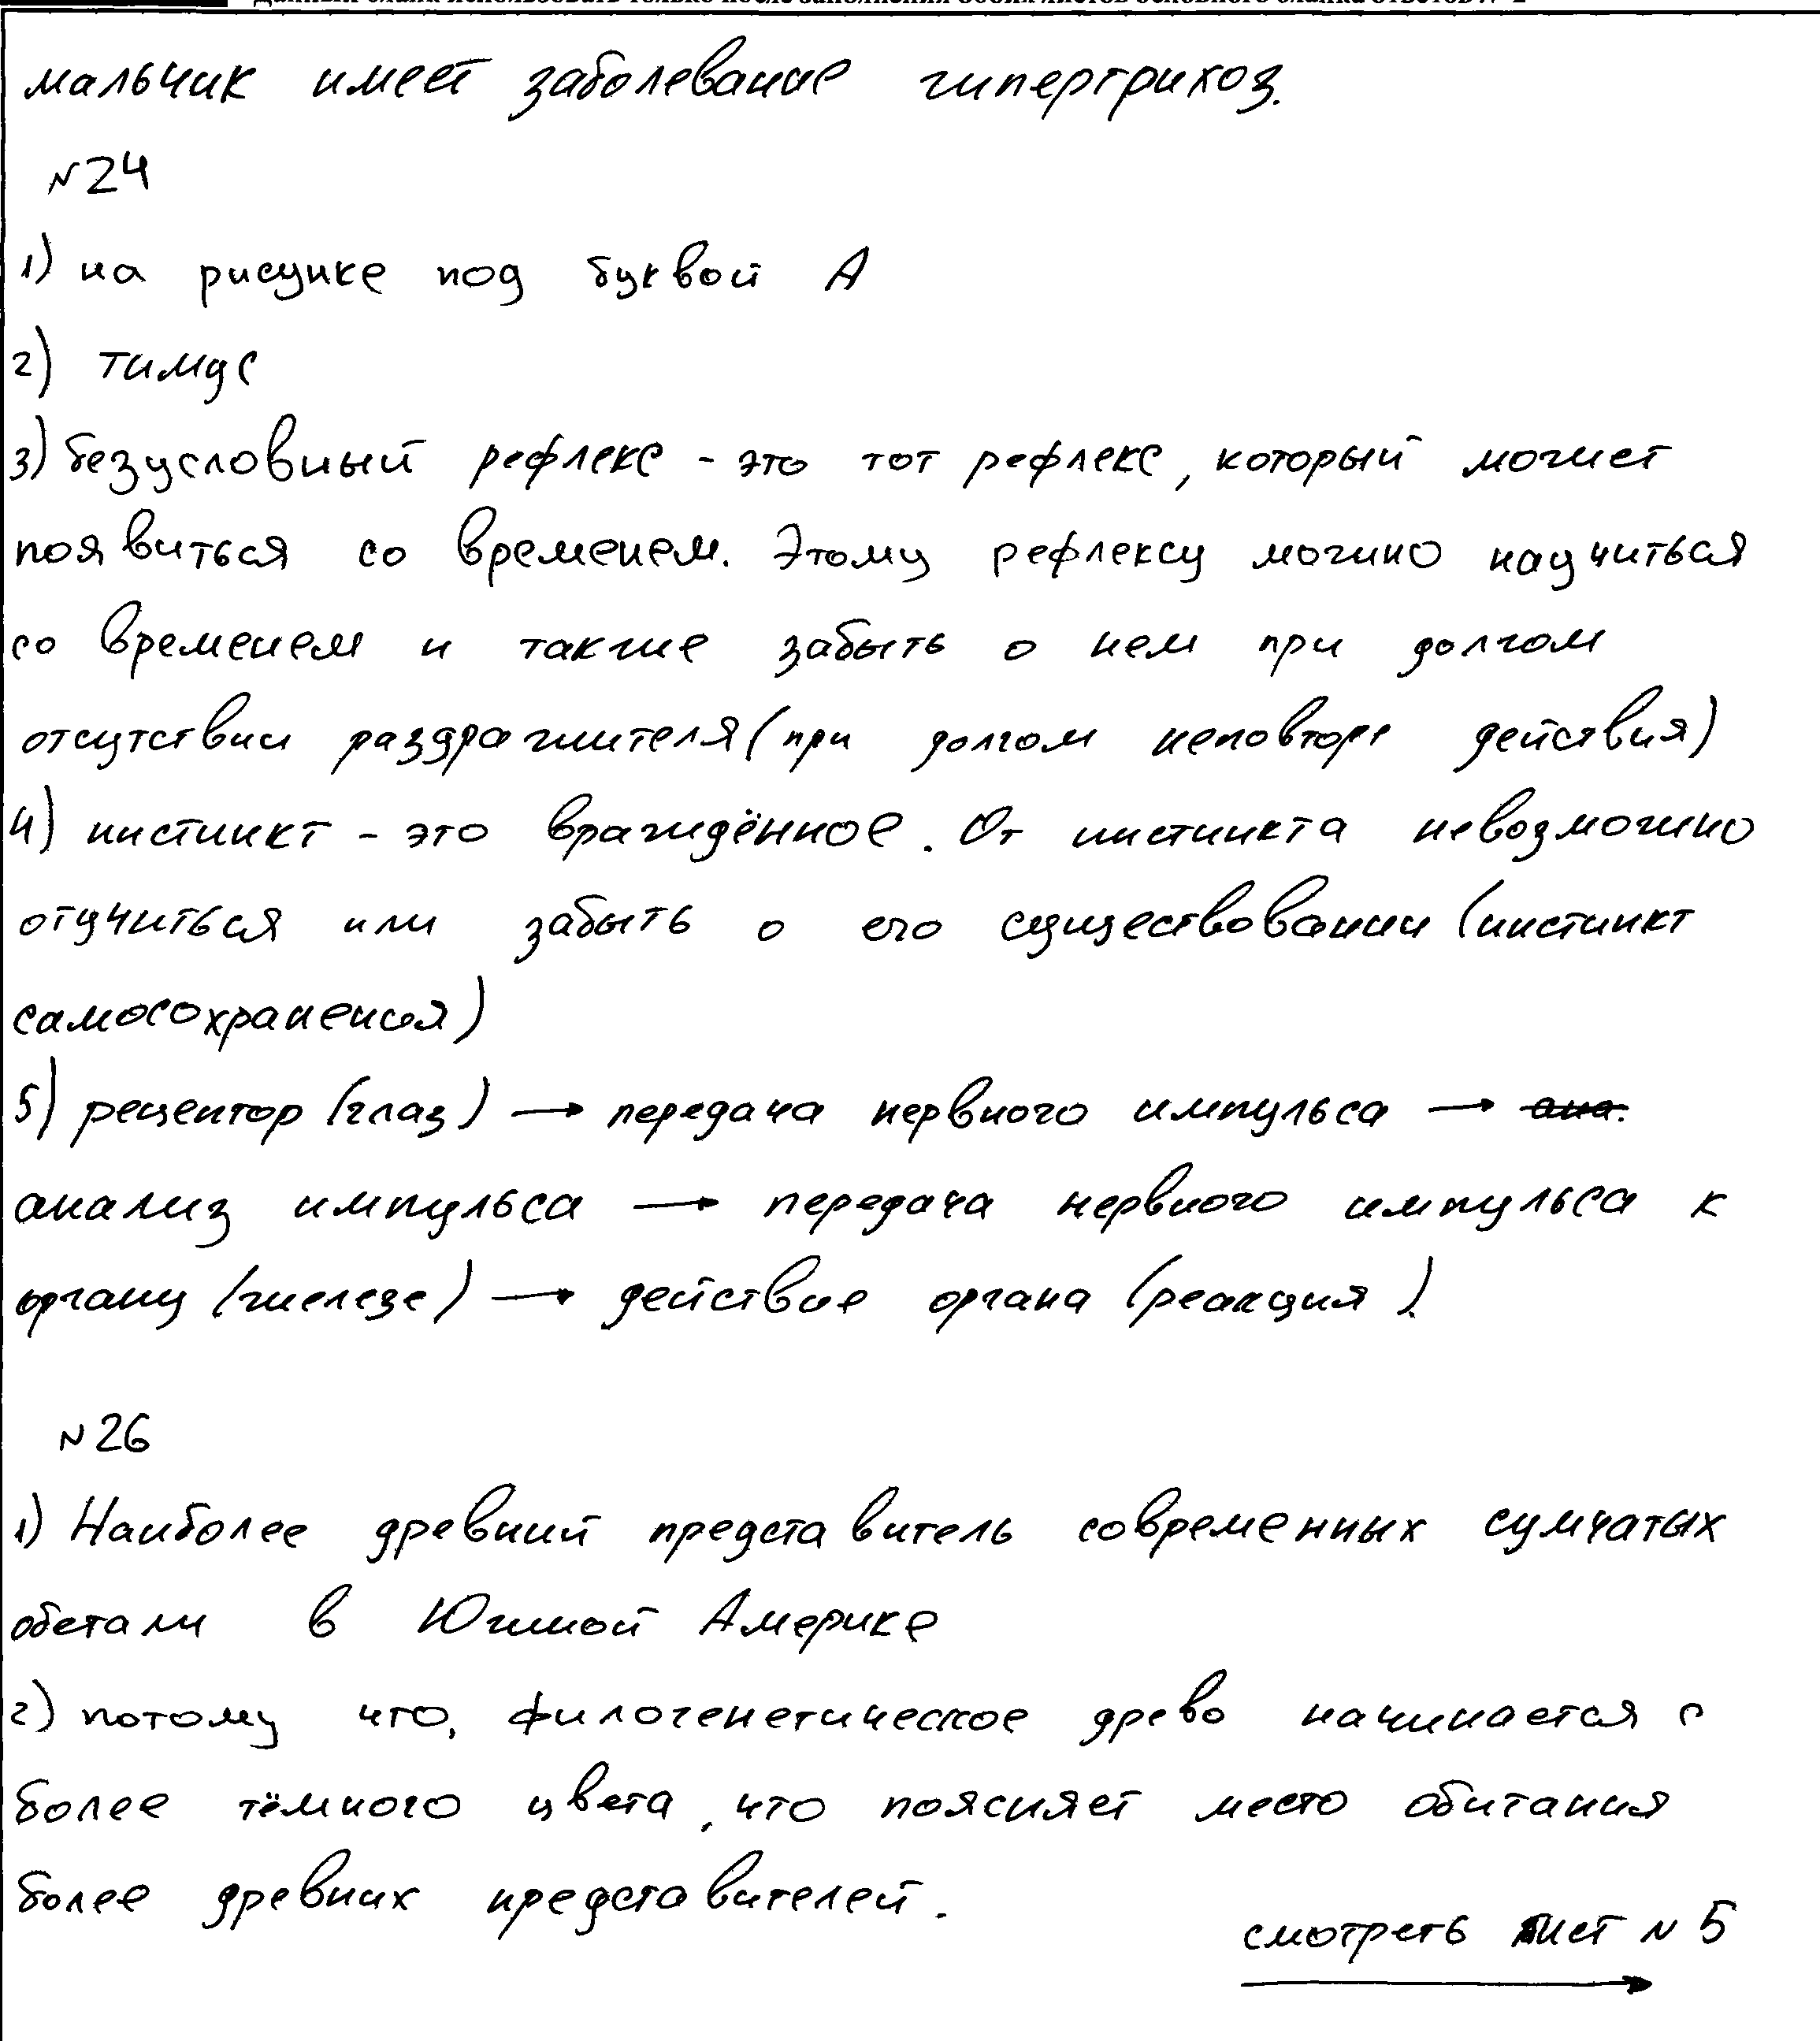 Данный бланк использовать только после заполнения обоих листов основного бланка ответов № 2
мальчик имеет заболевание гипертрихоз.
№24
1) на рисунке под буквой А
2) тимус
3) безусловный рефлекс - это тот рефлекс, который может
появиться со временем. Этому рефлексу можно научиться
со временем и также забыть о нем при долгом
отсутствии раздражителя (при долгом неповторе действия)
4) инстинкт - это врождённое. От инстинкта невозможно
отучиться или забыть о его существовании (инстинкт
самосохранения)
5) рецептор (глаз) → передача нервного импульса →
анализ импульса → передача нервного импульса к
органу (железе) → действие органа (реакция).
№26
1) Наиболее древний представитель современных сумчатых
обетали в Южной Америке
2) потому что, филогенетическое древо начинается с
более тёмного цвета, что поясняет место обитания
более древних представителей.
смотреть лист № 5